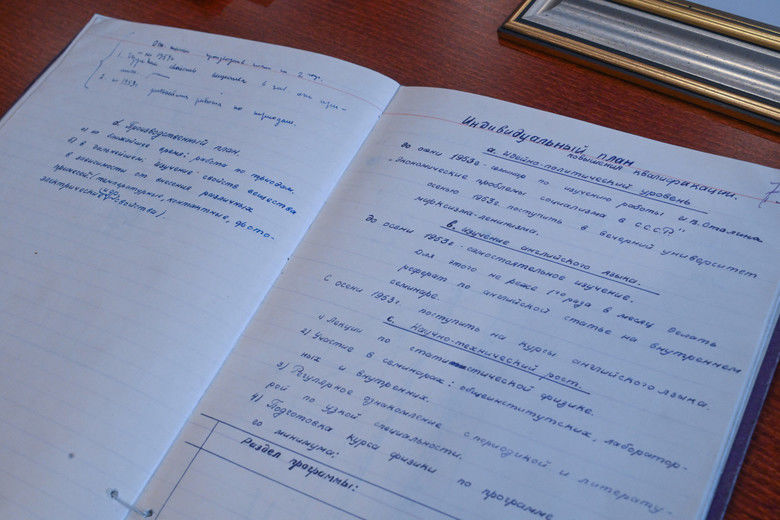 на 1953г
2. на 1953г.
d. Производственный план
а) на ближайшее время: работа по триодам
в) в дальнейшем: изучение свойств вещества
в зависимости от внесения различных
примесей /температурных, контактные, фото-
электрические свойства/.
Индивидуальный план
повышения квалификации.
а. идейно-политический уровень
до осени 1953г - семинар по изучению работы и.в. Сталина
„Экономические проблемы социализма в С.С.С.Р"
осенью 1953г. поступить в вечерний университет
марксизма-ленинизма.
в. изучение английского языка.
до осени 1953г - самостоятельное изучение.
Для этого не реже 1го раза в месяц делать
реферат по английской статье на внутреннем
семинаре.
С осени 1953г. поступить на курсы английского языка.
с. Научно-технический рост.
1) Лекции по статистической физике.
2) Участие в семинарах: общеинститутских, лаборатор-
ных и внутренних.
3) Регулярное ознакомление с периодикой и литерату-
рой по узкой специальности.
4) Подготовка курса физики по программе
го минимума:
Раздел программы: